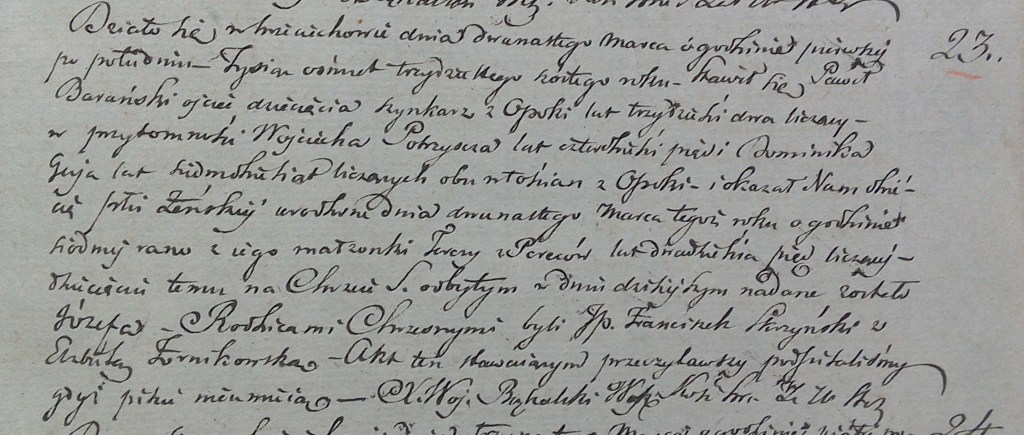 Działo się w trzciechowie dnia dwunastego Marca o godzinie pierwszej
23.
po południu – Tysiąc ośmset trzydziestego szóstego roku – Stawił się Paweł
Barański ojciec dziecięcia szynkarz z Opoki lat trzydzieści dwa liczący –
w przytomności Wojciecha Potrzyszcza lat czterdzieści pięć i Dominika
Guja lat siedmdziesiąt liczących obu włościan z Opoki – i okazał Nam dzié-
cię płci żeńskiej urodzone dnia dwunastego Marca tegoż roku o godzinie
siódmej rano z jego małżonki Teresy z Pereców lat dwadzieścia pięć liczącej –
dziecięciu temu na Chrzcie S. odbytym w dniu dzisiejszym nadane zostało
Józefa – Rodzicami Chrzesnymi byli Jp. Franciszek Skrzyński z
Elżbietą Fornikowską – Akt ten stawaiącym przeczytawszy podpisaliśmy
gdyż pisać nieumieią – X. Woj.
24